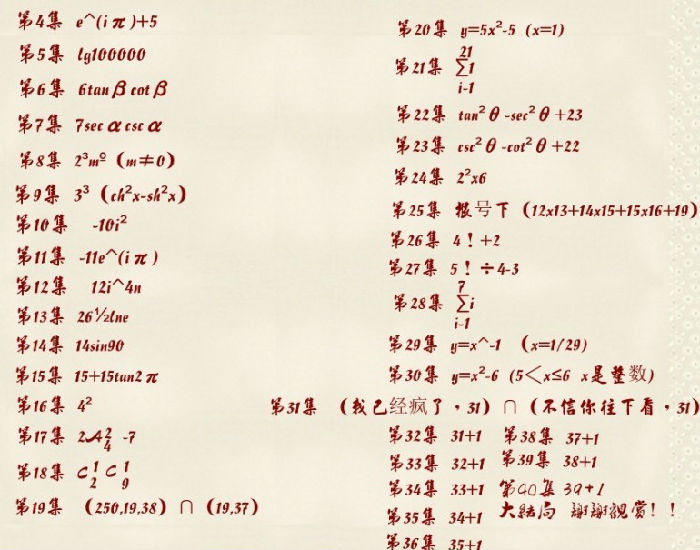 第4集 e^(iπ)+5
第5集 lg100000
第6集 6tanβcotβ
第7集 7secαcscα
第8集 2³mº（m≠0）
第9集 3³（ch²x-sh²x）
第10集 -10i²
第11集 -11e^(iπ)
第12集 12i^4n
第13集 26½lne
第14集 14sin90
第15集 15+15tan2π
第16集 4²
第17集 2A 2 4 -7
第18集 C 1 2 C 1 9
第19集 （250,19,38）∩（19,37）
第20集 y=5x²-5 (x=1)
21
第21集 ∑1
i-1
第22集 tan²θ-sec²θ+23
第23集 csc²θ-cot²θ+22
第24集 2²x6
第25集 根号下（12x13+14x15+15x16+19）
第26集 4！+2
第27集 5！÷4-3
7
第28集 ∑i
i-1
第29集 y=x^-1 （x=1/29）
第30集 y=x²-6 (5＜x≤6 x是整数)
第31集 （我已经疯了，31）∩（不信你往下看，31）
第32集 31+1
第33集 32+1
第34集 33+1
第35集 34+1
第36集 35+1
第38集 37+1
第39集 38+1
第40集 39+1
大結局 謝謝觀賞！！